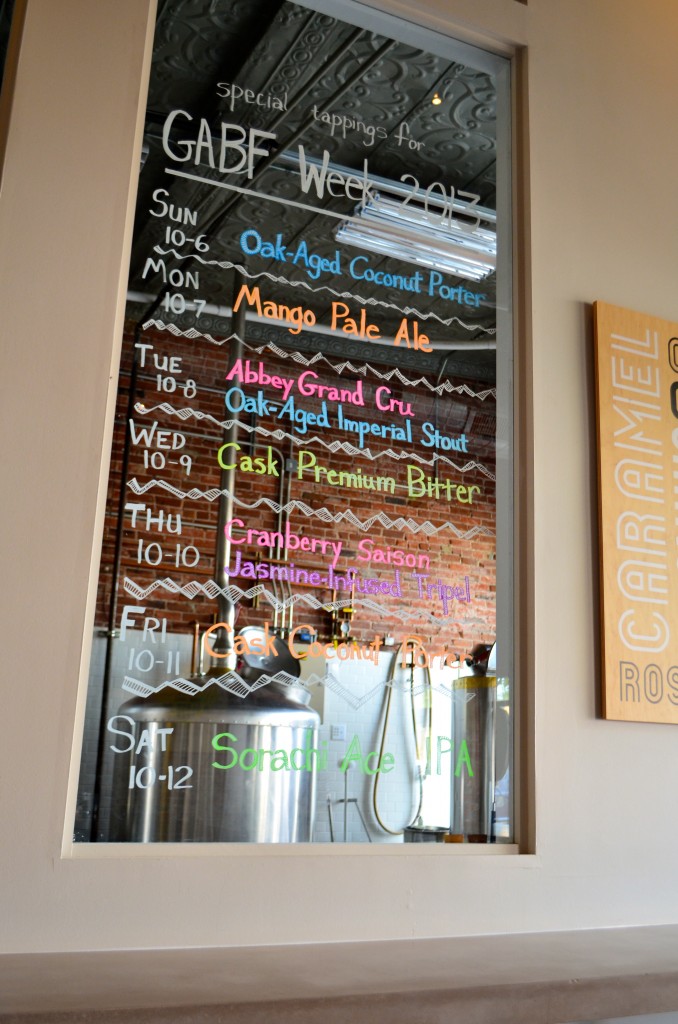 special tappings for
GABF Week 2013
SUN
10-6
Oak-Aged Coconut Porter
MON
10-7
Mango Pale Ale
TUE
10-8
Abbey Grand Cru
Oak-Aged Imperial Stout
WED
10-9
Cask Premium Bitter
THU
10-10
Cranberry Saison
Jasmine-Infused Tripel
FRI
10-11
Cask Coconut Porter
SAT
10-12
Sorachi Ace IPA
CARAMEL
ROS